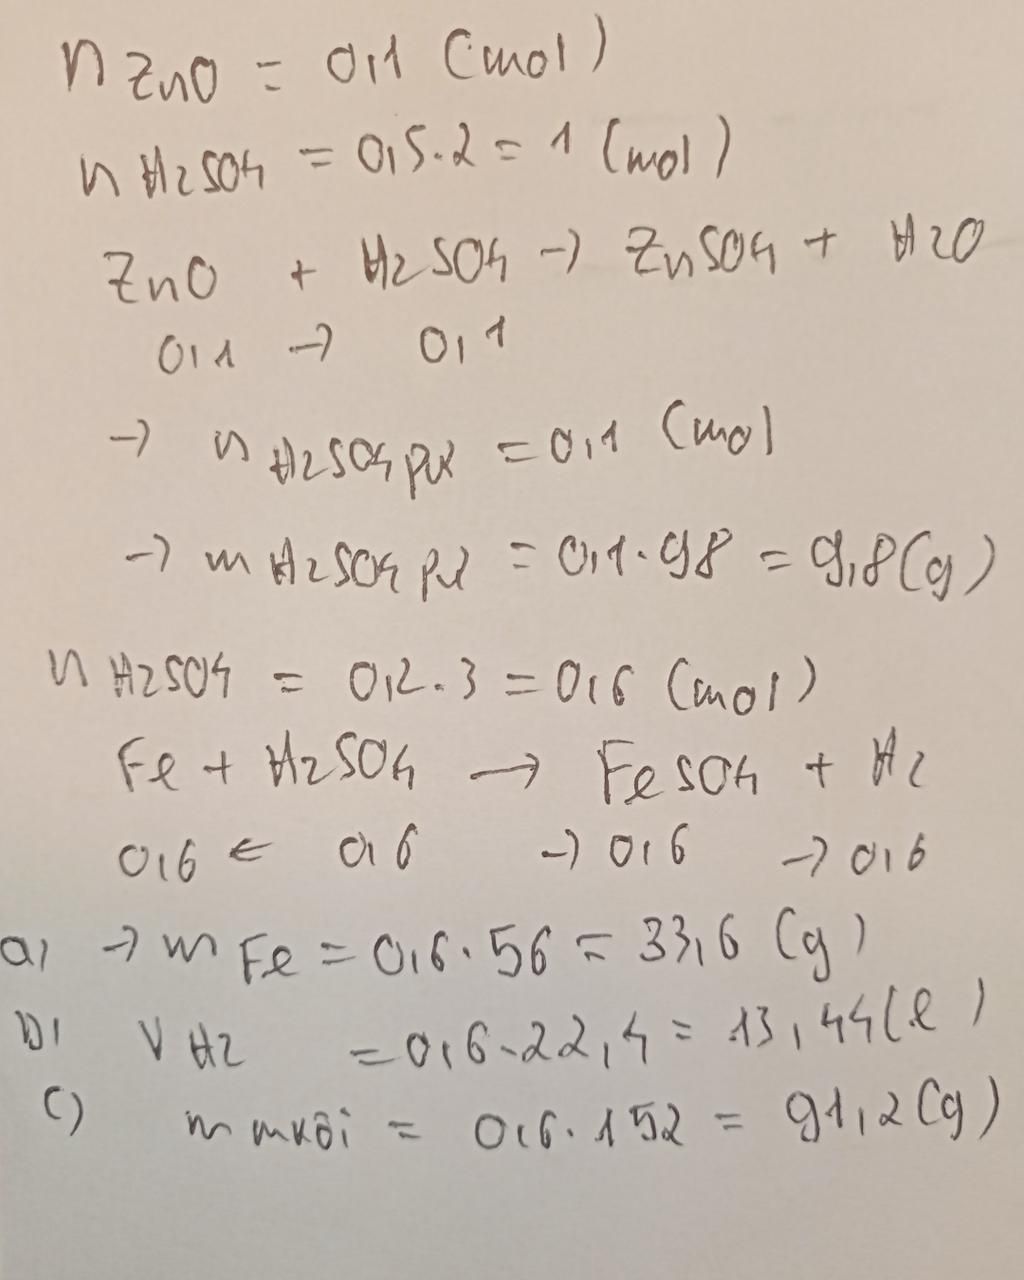 n ZnO = 0,1 (mol)
n H2SO4 = 0,5.2 = 1 (mol)
ZnO + H2SO4 -> ZnSO4 + H2O
0,1 -> 0,1
-> n H2SO4 pư = 0,1 (mol
-> m H2SO4 pư = 0,1.98 = 9,8(g)
n H2SO4 = 0,2.3 = 0,6 (mol)
Fe + H2SO4 -> FeSO4 + H2
0,6 <- 0,6 -> 0,6 -> 0,6
a) -> m Fe = 0,6.56 = 33,6 (g)
b) V H2 = 0,6.22,4 = 13,44(l)
c) m muối = 0,6.152 = 91,2(g)